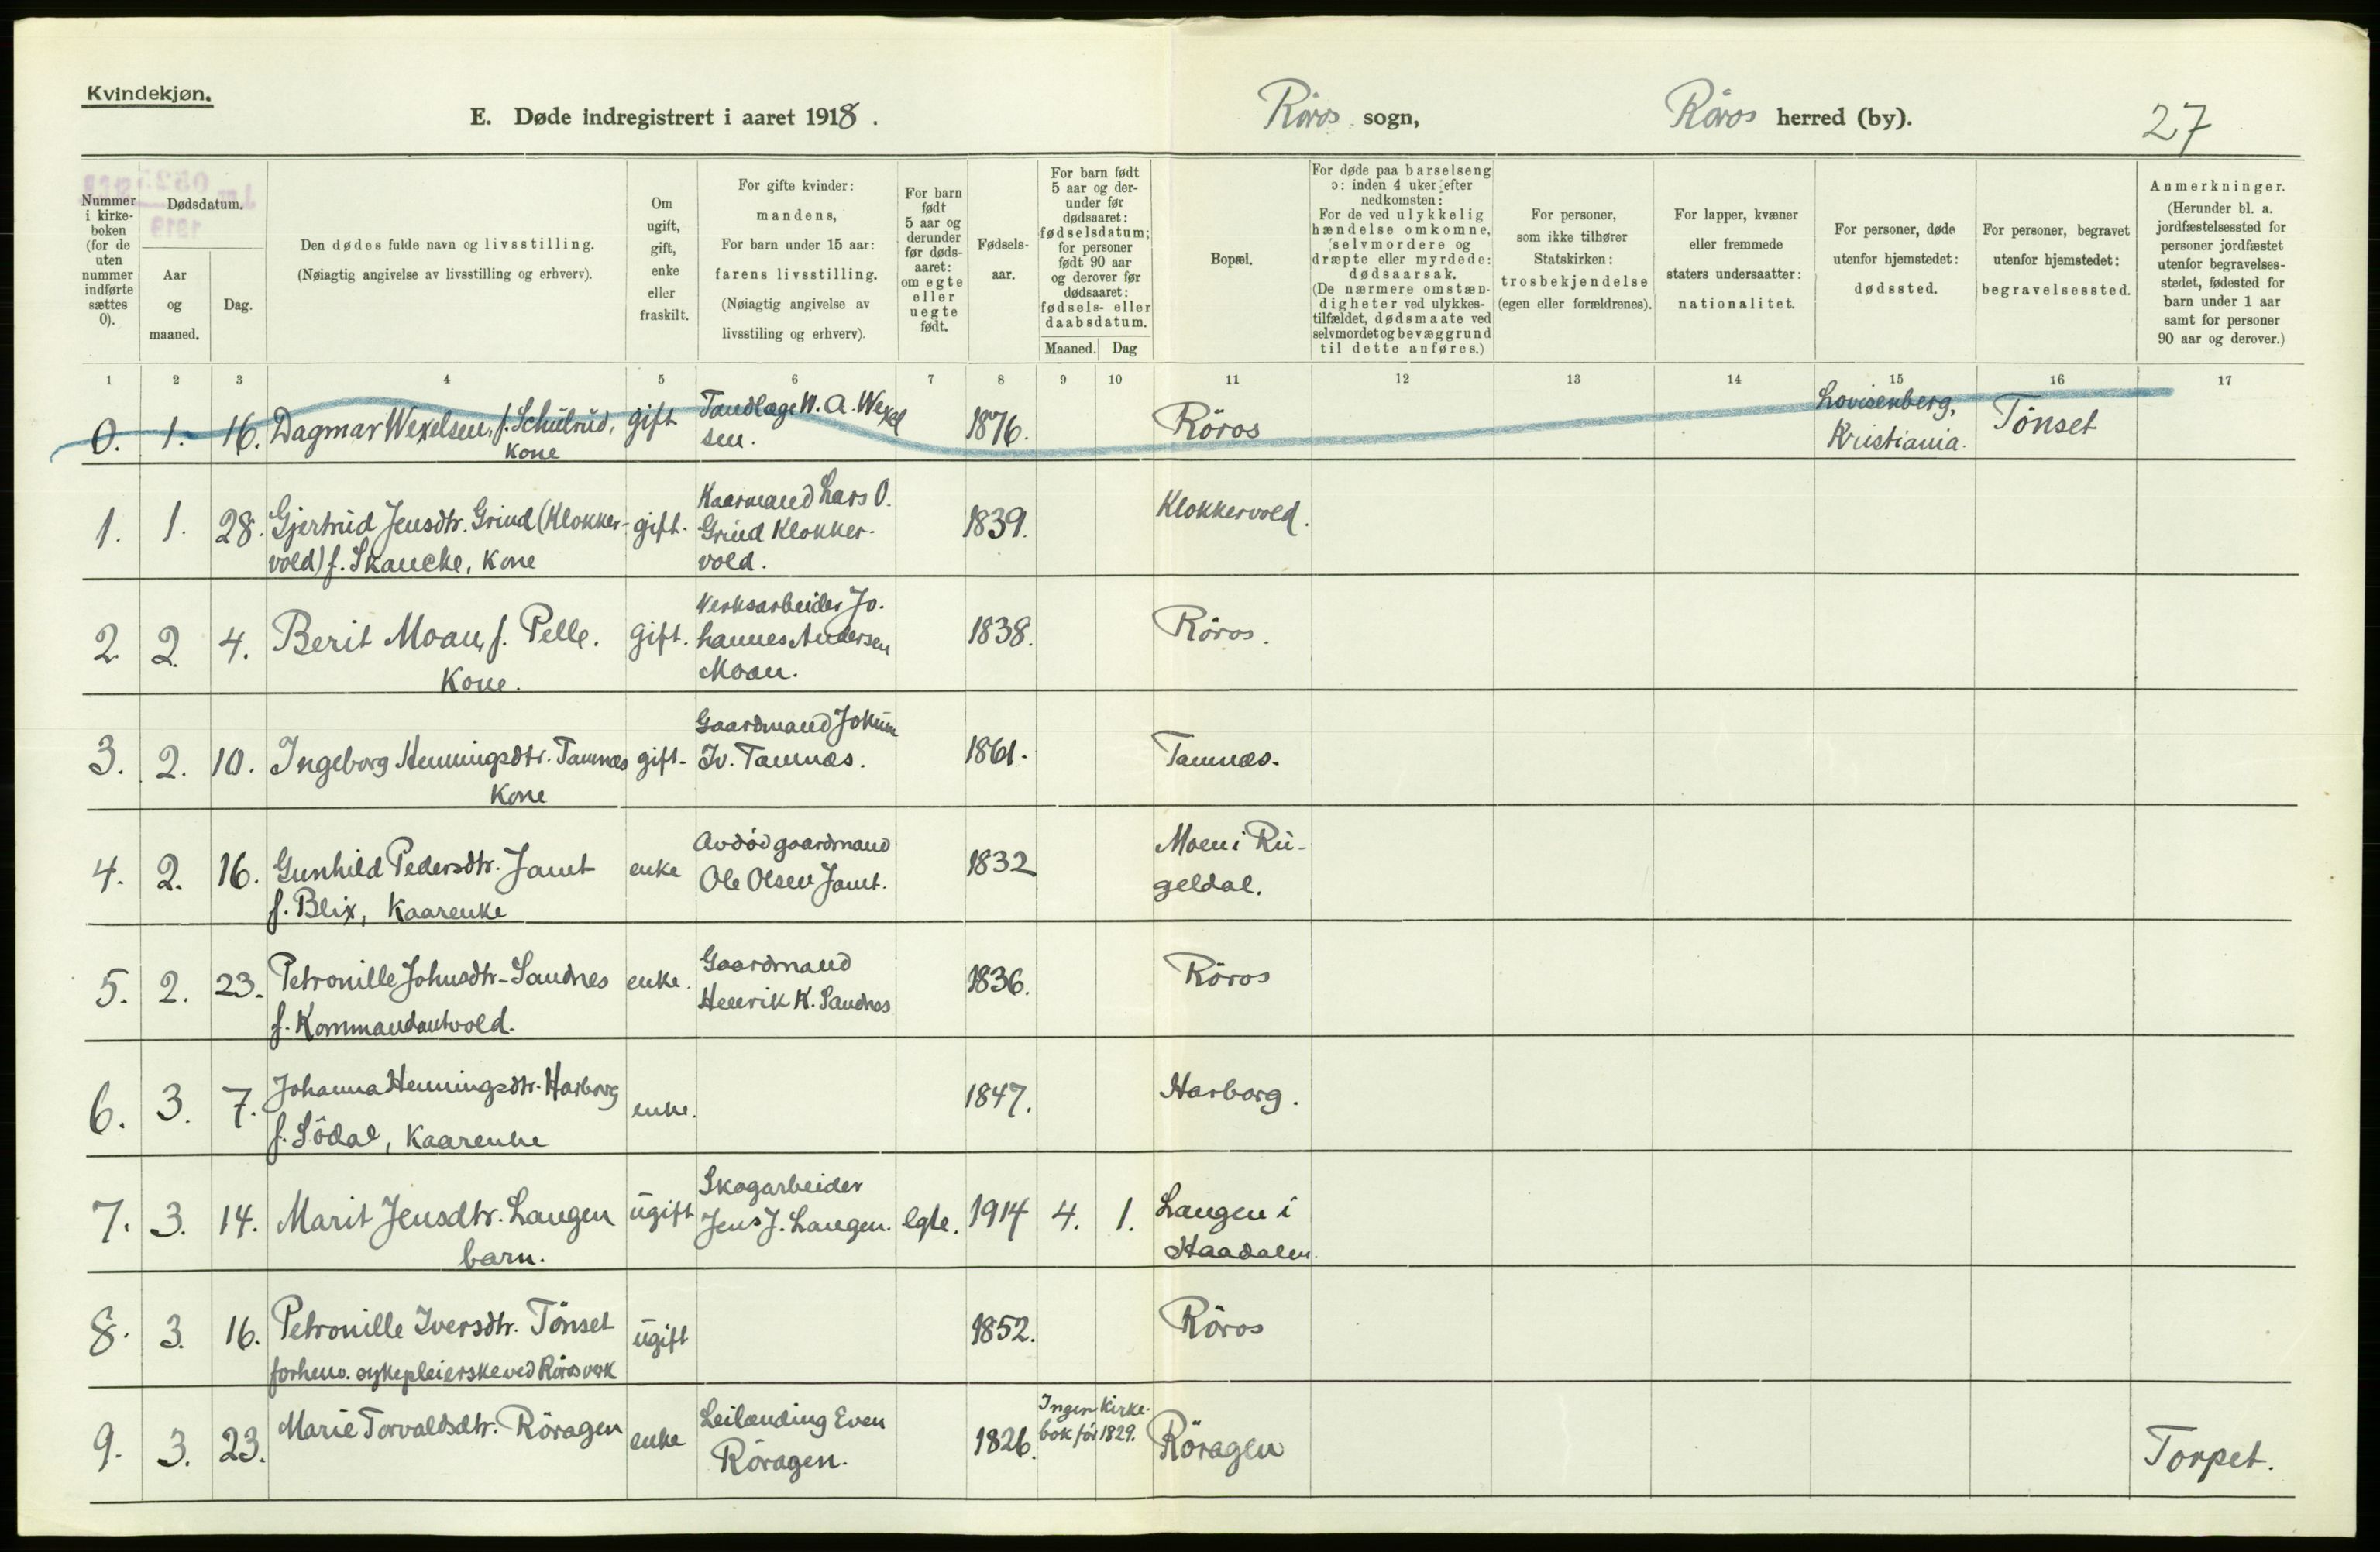 Kvindekjøn.
E. Døde indregistrert i aaret 1918.
Röros sogn,
Röros herred (by).
27
Nummer
i kirke-
boken
(for de
uten
nummer
indførte
sættes
0).
Dødsdatum.
Aar
og
maaned.
Dag.
Den dødes fulde navn og livsstilling.
(Nøiagtig angivelse av livsstilling og erhverv).
Om
ugift,
gift,
enke
eller
fraskilt.
For gifte kvinder:
mandens,
For barn under 15 aar:
farens livsstilling.
(Nøiagtig angivelse av
livsstiling og erhverv).
For barn
født
5 aar og
derunder
før døds-
aaret:
om egte
eller
uegte
født.
Fødsels-
aar.
For barn født
5 aar og der-
under før
dødsaaret:
fødselsdatum;
for personer
født 90 aar
og derover før
dødsaaret:
fødsels- eller
daabsdatum.
Maaned.
Dag
Bopæl.
For døde paa barselseng
ɔ: inden 4 uker efter
nedkomsten:
For de ved ulykkelig
hændelse omkomne,
selvmordere og
dræpte eller myrdede:
dødsaarsak.
(De nærmere omstæn-
digheter ved ulykkes-
tilfældet, dødsmaate ved
selvmordet og bevæggrund
til dette anføres.)
For personer,
som ikke tilhører
Statskirken:
trosbekjendelse
(egen eller forældrenes).
For lapper, kvæner
eller fremmede
staters undersaatter:
nationalitet.
For personer, døde
utenfor hjemstedet:
dødssted.
For personer, begravet
utenfor hjemstedet:
begravelsessted.
Anmerkninger.
(Herunder bl. a.
jordfæstelsessted for
personer jordfæstet
utenfor begravelses-
stedet, fødested for
barn under 1 aar
samt for personer
90 aar og derover.)
1 2 3 4 5 6 7 8 9 10 11 12 13 14 15 16 17
0. 1. 16. Dagmar Wexelsen, f. Schulrud, gift Tandlæge W. A. Wexel 1876. Röros Lovisenberg, Tönset
Kone sen. Kristiania.
Kaarmand Lars O.
1. 1. 28. Gjertrud Jensdtr. Grind (Klokker- gift. Grind Klokker- 1839. Klokkervold.
vold) f. Skancke, Kone vold.
Verksarbeider Jo-
2 2. 4. Berit Moan, f. Pelle. gift. hannes Andersen 1838. Röros.
Kone. Moan.
Gaardmand Jokum
3. 2. 10. Ingeborg Henningsdtr. Tamnæs gift. Iv. Tamnæs. 1861. Tamnæs.
Kone
Avdöd gaardmand Moen i Ru-
4. 2. 16. Gunhild Pedersdtr. Jamt enke Ole Olsen Jamt. 1832 geldal.
f. Blix, Kaarenke
Gaardmand
5. 2. 23. Petronille Johnsdtr. Sandnes enke. Henrik K. Sandnes 1836. Röros
f. Kommandantvold.
6. 3. 7. Johanna Henningsdtr. Harborg enke. 1847. Harborg.
f. Södal, Kaarenke
Skogarbeider
7. 3. 14. Marit Jensdtr. Langen ugift Jens J. Langen. egte. 1914 4. 1. Langen i
barn. Haadalen.
8. 3. 16. Petronille Iversdtr. Tönset ugift 1852. Röros
forhenv. sykepleierske ved Röros verk
Leilænding Even Ingen Kirke-
9. 3. 23. Marie Torvaldsdtr. Röragen enke Röragen. 1826. bok för 1829. Röragen Torpet.